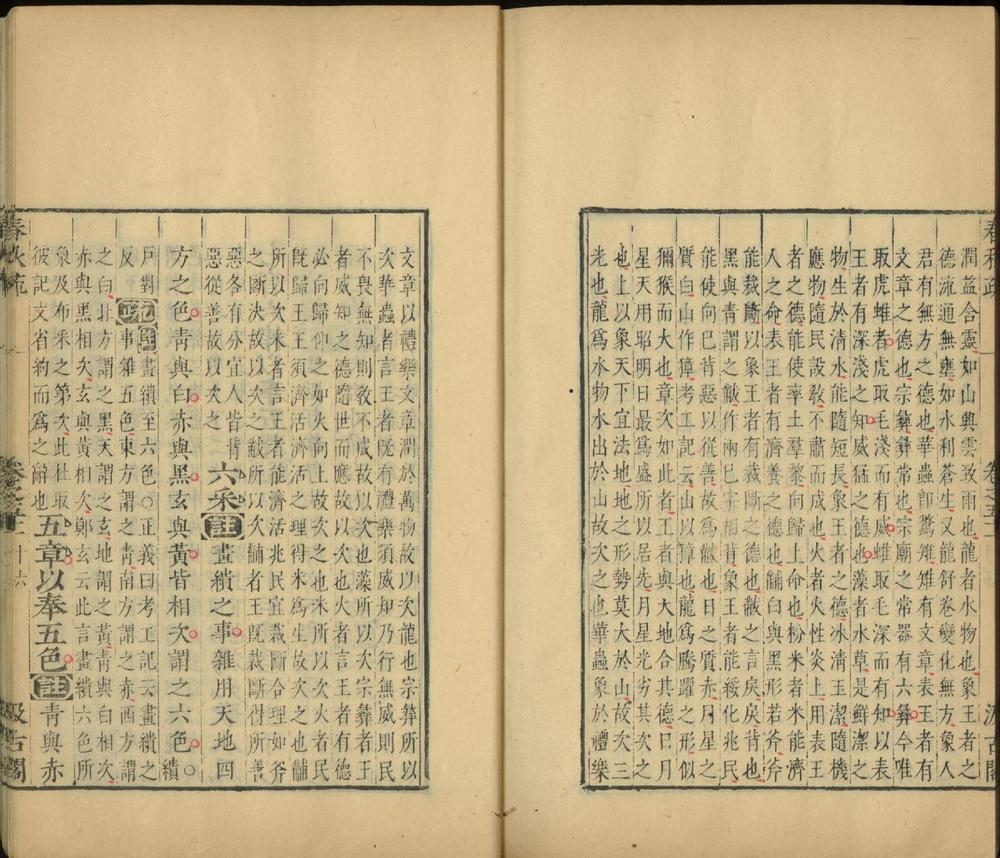 潤益含靈如山興雲致雨也龍者水物也象王者之
德流通無壅如水利蒼生又龍舒卷變化無方象人
君有無方之德也華蟲卽鷩雉雉有文章表王者有
文章之德也宗彝彝常也宗廟之常器有六彝今唯
取虎蜼者虎取毛淺而有威蜼取毛深而有知以表
王者有深淺之知威猛之德也藻者水草是鮮潔之
物生於清水能隨短長象王者之德冰清玉潔隨機
應物隨民設敎不肅而成也火者火性炎上用表王
者之德能使率土羣黎向歸上命也粉米者米能濟
人之命表王者有濟養之德也黼白與黑形若斧斧
能裁斷以象王者有裁斷之德也黻之言戾戾背也
黑與靑謂之黻作兩巳字相背象王者能綏化兆民
能使向巳背惡以從善故爲黻也日之質赤月之
質白山作獐考工記云山以獐也龍爲騰躍之形似
獼猴而大也章次如此者王者與大地合其德日月
星天用昭明日最爲盛所以王居先月星光劣其次之
也上以象天下宜法地地之形勢莫大於山故次三
光也龍爲水物水出於山故次之也華蟲象於禮樂
春秋疏
卷之五十一
汲古閣
文章以禮樂文章潤於萬物故以次龍也宗彝所以
次華蟲者言王者旣有禮樂須威知乃行無威則民
不畏無知則敎不成故以次也藻所以次宗彝者王
者威知之德隨世而應故以次也火者言王者有德
必向歸仰之如火向上故次之也米所以次火者民
旣歸王王須濟活之理得米爲生故次之也黼
所以次米者言王者能濟活兆民宜裁斷合理如斧
之斷決故以次之黻所以次黼者王旣裁斷得所善
惡各有分宜人皆背
惡從善故以次之
六采註畫繢之事雜用天地四
方之色靑與白赤與黑玄與黃皆相次謂之六色○
繢
戶對
反
疏註畫繢至六色○正義曰考工記云畫繢之
事雜五色東方謂之靑南方謂之赤西方謂
之白北方謂之黑天謂之玄地謂之黃靑與白相次
赤與黑相次玄與黃相次鄭玄云此言畫繢六色所
象及布采之第次此杜取
彼記文省約而爲之辭也
五章以奉五色註靑與赤
春秋疏
卷之五十一
十六
汲古閣